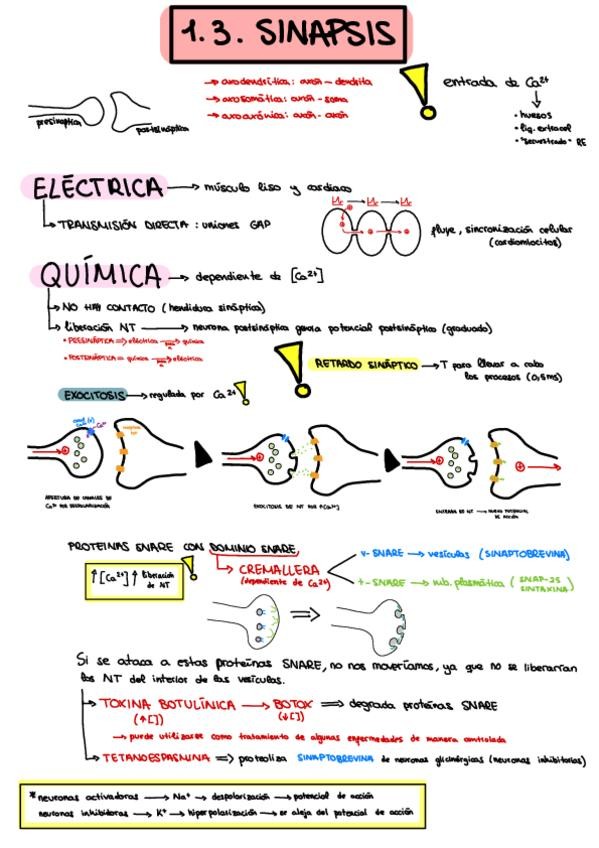 1.3. SINAPSIS
→ axodendrítica: axón - dendrita
→ axosomática: axón - soma
→ axoaxónica: axón - axón
entrada de Ca²⁺
• huesos
• líq. extracel
• "secuestrado" RE
presináptica
postsináptica
ELÉCTRICA → músculo liso y cardiaco
→ TRANSMISIÓN DIRECTA: uniones GAP
fluye, sincronización celular
(cardiomiocitos)
QUÍMICA → dependiente de [Ca²⁺]
→ NO HAY CONTACTO (hendidura sináptica)
→ liberación NT → neurona postsináptica genera potencial postsináptico (graduado)
• PRESINÁPTICA ⇒ eléctrica → química
• POSTSINÁPTICA = química → eléctrica
RETARDO SINÁPTICO → T para llevar a cabo
los procesos (0,5ms)
EXOCITOSIS → regulada por Ca²⁺
APERTURA DE CANALES DE
Ca²⁺ POR DESPOLARIZACIÓN
EXOCITOSIS DE NT POR ↑[Ca²⁺]
ENTRADA DE NT → NUEVO POTENCIAL
DE ACCIÓN
PROTEINAS SNARE CON DOMINIO SNARE
↑[Ca²⁺] ↑ liberación
de NT
→ CREMALLERA
(dependiente de Ca²⁺)
v-SNARE → vesículas (SINAPTOBREVINA)
t-SNARE → mb. plasmática (SNAP-25
SINTAXINA)
Si se ataca a estas proteínas SNARE, no nos moveríamos, ya que no se liberarían
los NT del interior de las vesículas.
→ TOXINA BOTULÍNICA → BOTOX ⇒ degrada proteínas SNARE
(↑[]) (↓[])
→ puede utilizarse como tratamiento de algunas enfermedades de manera controlada
→ TETANOESPASMINA ⇒ proteoliza SINAPTOBREVINA de neuronas glicinérgicas (neuronas inhibitorias)
* neuronas activadoras → Na⁺ → despolarización → potencial de acción
neuronas inhibidoras → K⁺ → hiperpolarización → se aleja del potencial de acción